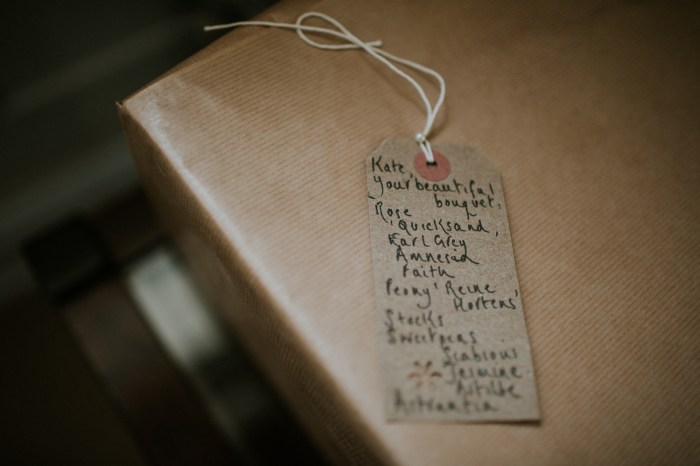 Kate,
your beautiful
bouquet,
Rose
'Quicksand',
Earl Grey
Amnesia
Faith
Peony 'Reine
Hortens'
Stocks
Sweetpeas
Scabious
Jasmine
Astilbe
Astrantia